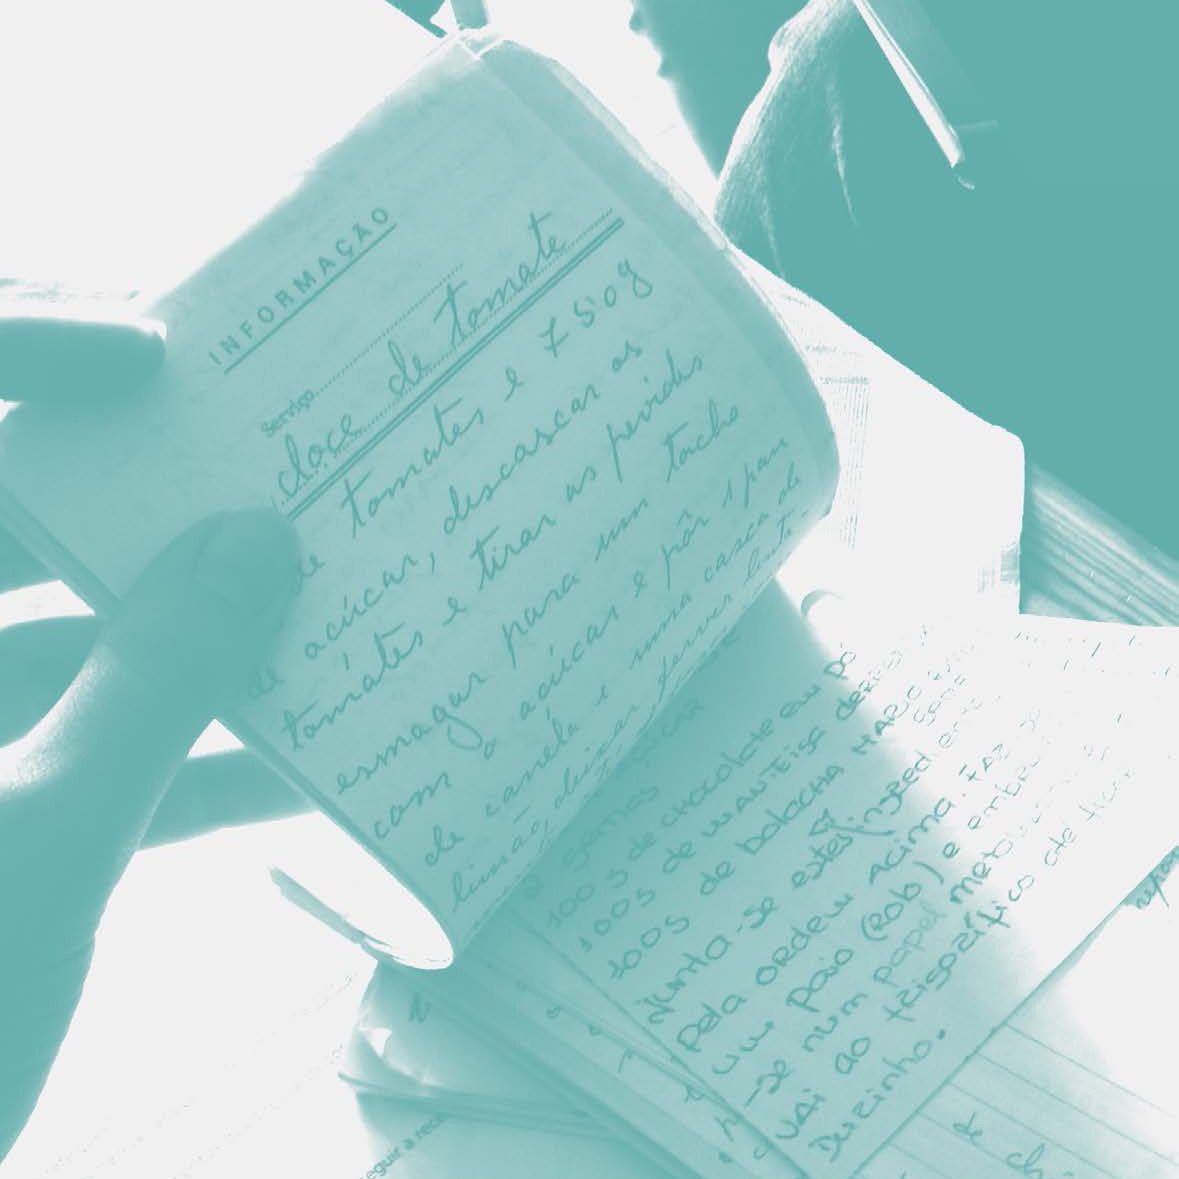 INFORMAÇÃO
Serviço
doce de tomate
de tomates e 750g
de açúcar, descascar os
tomates e tirar as pevides
esmagar para um tacho
com o açúcar e pôr 1 pau
de canela e uma casca de
limão, deixar ferver
gemas
100g de chocolate em pó
100g de manteiga
100g de bolacha MARIA
Junta-se estes ingredientes
pela ordem acima. Faz-se
um paio (Rob) e embru
-se num papel metal
Vai ao frigorífico até ficar
Durinho.
de ch